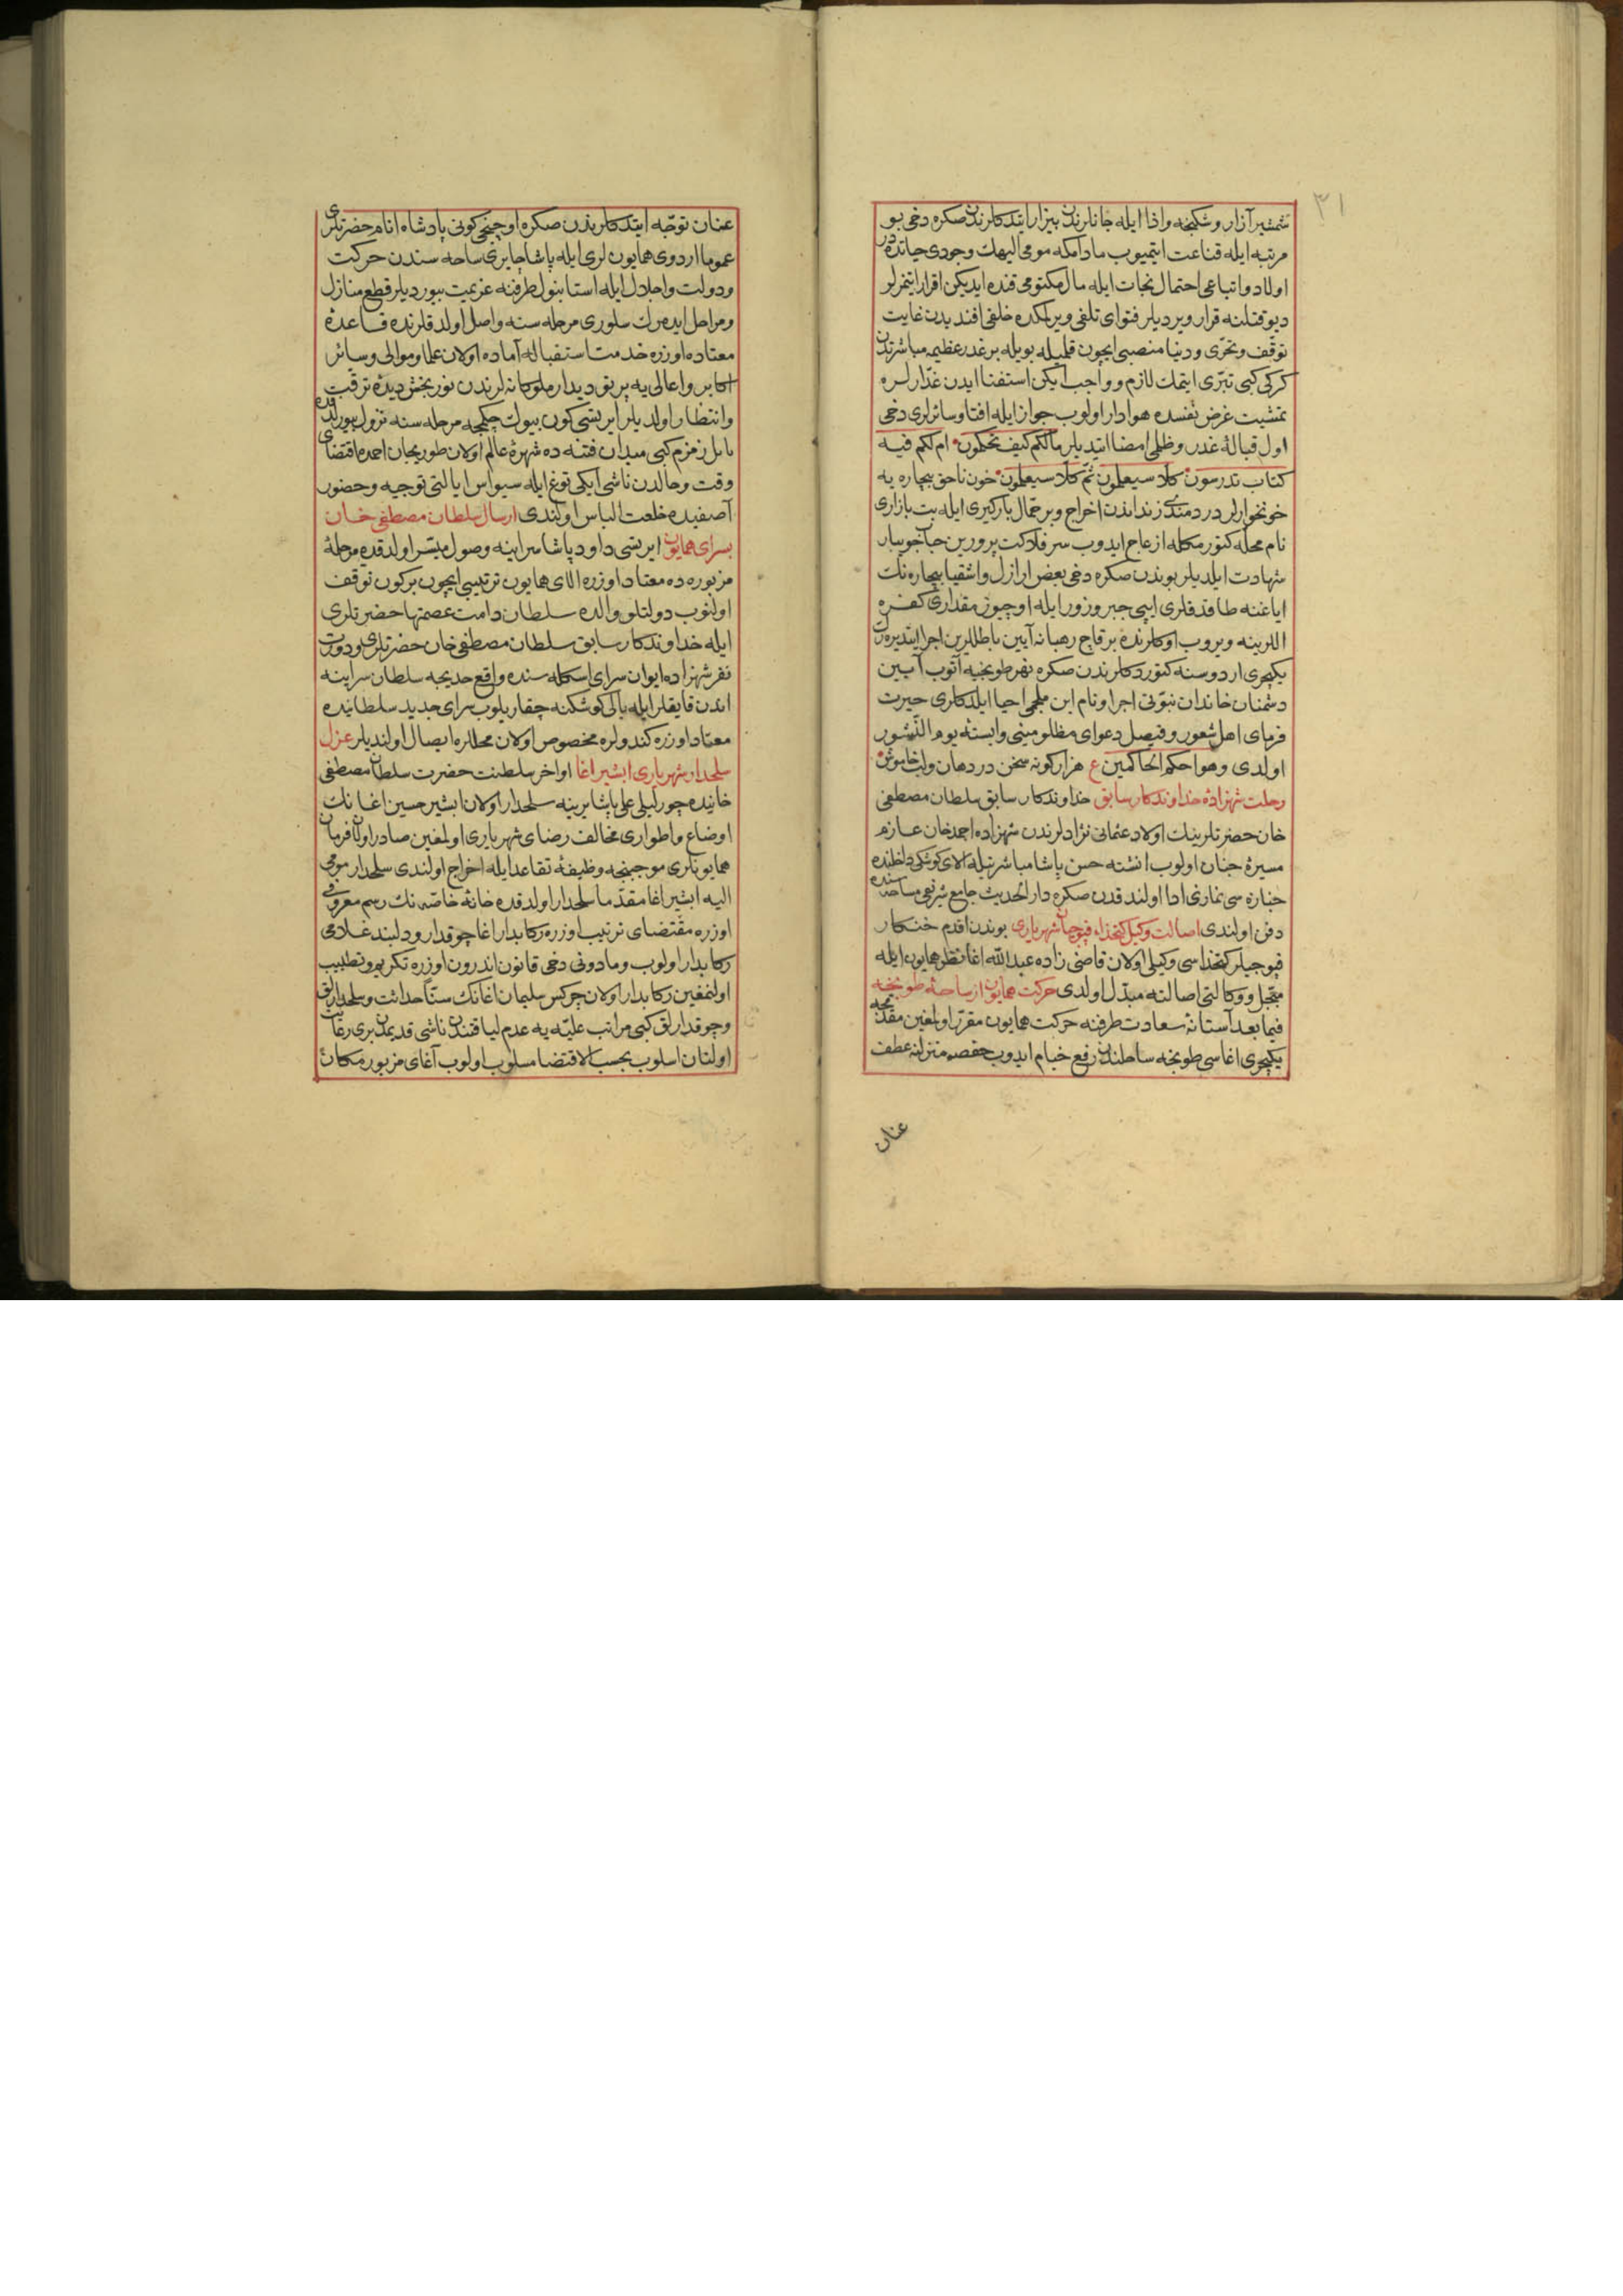 ٣١
شمشیر آزار و شکنجه و اذا ایله جانلرندن بیزار ایتدکلرندن صکره دخی بو
مرتبه ایله قناعت ایتمیوب مادامکه مومی الیهك وجودی حیاتده در
اولاد و اتباعی احتمال نجات ایله مال مکتومی قنده ایدیکن اقرار ایتمزلر
دیو قتلنه قرار ویردیلر فتوای تلفی ویرلمکده خلفی افندیدن غایت
توقف و تحری و دنیا منصبی ایچون قلیله بویله بر غدر عظیمه مباشرتدن
کرکی کبی تبری ایتمك لازم و واجب ایکن استفتا ایدن غدارلره
تمشیت غرض نفسده هوادار اولوب جواز ایله افتا و سائرلری دخی
اول قبالۀ غدر و ظلمی امضا ایتدیلر مالکم کیف تحکمون ام لکم فیه
کتاب تدرسون کلا سیعلمون ثم کلا سیعلمون خون ناحق بیچاره یه
خونخوارلر دردمندی زنداندن اخراج و بر حمال بارکیری ایله بت بازاری
نام محله کتورمکله ازعاج ایدوب سر فلاکت پرورین جویبار
شهادت ایلدیلر بوندن صکره دخی بعض ارازل و اشقیا بیچاره نك
ایاغنه طاقدقلری ایپی جبر و زور ایله اوچیوز مقداری کفره
اللرینه ویروب اوکلرنده برقاچ رهبانه آیین باطللرین اجرا ایتدیره رك
یکیچری اردوسنه کتوردکلرندن صکره نهر طونجیه آتوب آیین
دشمنان خاندان نبوتی اجرا و نام ابن ملجمی احیا ایلدکلری حیرت
فرمای اهل شعور و فیصل دعوای مظلومیتی وابسته یوم النشور
اولدی وهو احکم الحاکمین ع هزار کونه سخن در دهان ولب خاموش
رحلت شهزادۀ خداوندکار سابق خداوندکار سابق سلطان مصطفی
خان حضرتلرینك اولاد عثمانی نژادلرندن شهزاده احمد خان عازم
مسیرۀ جنان اولوب انشته حسن پاشا مباشرتیله الای کوشکی داخلنده
جنازه سی نمازی ادا اولندقدن صکره دار الحدیث جامع شریفی ساحه سنده
دفن اولندی اصالت وکیل کتخداء قپوجیان شهریاری بوندن اقدم خنکار
قپوجیلر کتخداسی وکیلی اولان قاضی زاده عبد الله اغا نظر همایون ایله
مبجل و وکالتی اصالته مبدل اولدی حرکت همایون از ساحۀ طونجه
فیما بعد آستانۀ سعادت طرفنه حرکت همایون مقرر اولمغین مقدمجه
یکیچری اغاسی طونجه ساحلندن رفع خیام ایدوب حفصه منزلنه عطف
عنان
عنان توجه ایتدکلرندن صکره اوچنجی کونی پادشاه انام حضرتلری
عموما اردوی همایون لری ایله پاشا چایری ساحه سندن حرکت
ودولت و اجلال ایله استانبول طرفنه عزیمت بیوردیلر قطع منازل
ومراحل ایده رك سلوری مرحله سنه واصل اولدقلرنده قاعدۀ
معتاده اوزره خدمت استقباله آماده اولان علما و موالی و سائر
اکابر و اعالی یه پرتو دیدار ملوکانه لرندن نوربخش دیدۀ ترقب
وانتظار اولدیلر ایرتسی کون بیوك چکمجه مرحله سنه نزول بیورلدقده
بابل زمزم کبی میدان فتنه ده شهرۀ عالم اولان طوریجان احمده اقتضای
وقت و حالدن ناشی ایکی توغ ایله سیواس ایالتی توجیه و حضور
آصفیده خلعت الباس اولندی ارسال سلطان مصطفی خان
بسرای همایون ایرتسی داود پاشا سراینه وصول میسر اولدقده مرحلۀ
مزبوره ده معتاد اوزره الای همایون ترتیبی ایچون بر کون توقف
اولنوب دولتلو والده سلطان دامت عصمتها حضرتلری
ایله خداوندکار سابق سلطان مصطفی خان حضرتلری و درت
نفر شهزاده ایوان سرای اسکله سنده واقع خدیجه سلطان سراینه
اندن قایقلر ایله یالی کوشکنه چقاریلوب سرای جدید سلطانیده
معتاد اوزره کندولره مخصوص اولان محللره ایصال اولندیلر عزل
سلحدار شهریاری ابشیر اغا اواخر سلطنت حضرت سلطان مصطفی
خانیده چورلیلی علی پاشا یرینه سلحدار اولان ابشیر حسین اغانك
اوضاع و اطواری مخالف رضای شهریاری اولمغین صادر اولان فرمان
همایونلری موجبنجه وظیفۀ تقاعد ایله اخراج اولندی سلحدار مومی
الیه ابشیر اغا مقدما سلحدار اولدقده خانۀ خاصه نك رسم معروفی
اوزره مقتضای ترتیب اوزره رکابدار اغا چوقدار و دلبند غلامی
رکابدار اولوب و مادونی دخی قانون اندرون اوزره تکریم و تطییب
اولنمغین رکابدار اولان چرکس سلیمان اغانك سنا حداثت و سلحدارلق
وچوقدارلق کبی مراتب علیه یه عدم لیاقتندن ناشی قدیمدن بری رعایت
اولنان اسلوب بحسب الاقتضا مسلوب اولوب آغای مزبور مکانا